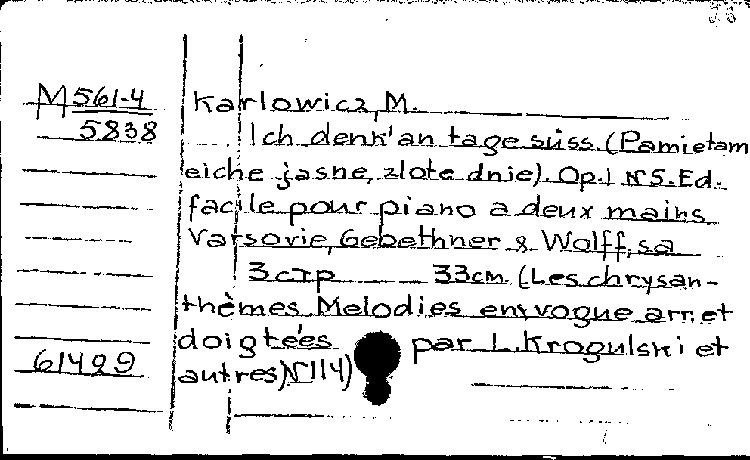 M 561-4
5838
Karłowicz, M.
Ich denk' an tage süss. (Pamietam
ciche jasne, zlote dnie). Op.1 № 5. Ed.
facile pour piano a deux mains
Varsovie, Gebethner & Wolff, sa
3 стр 33cm (Les chrysan-
thèmes Melodies en vogue arr. et
doigtées par L. Krogulski et
autres) № 114)
61499